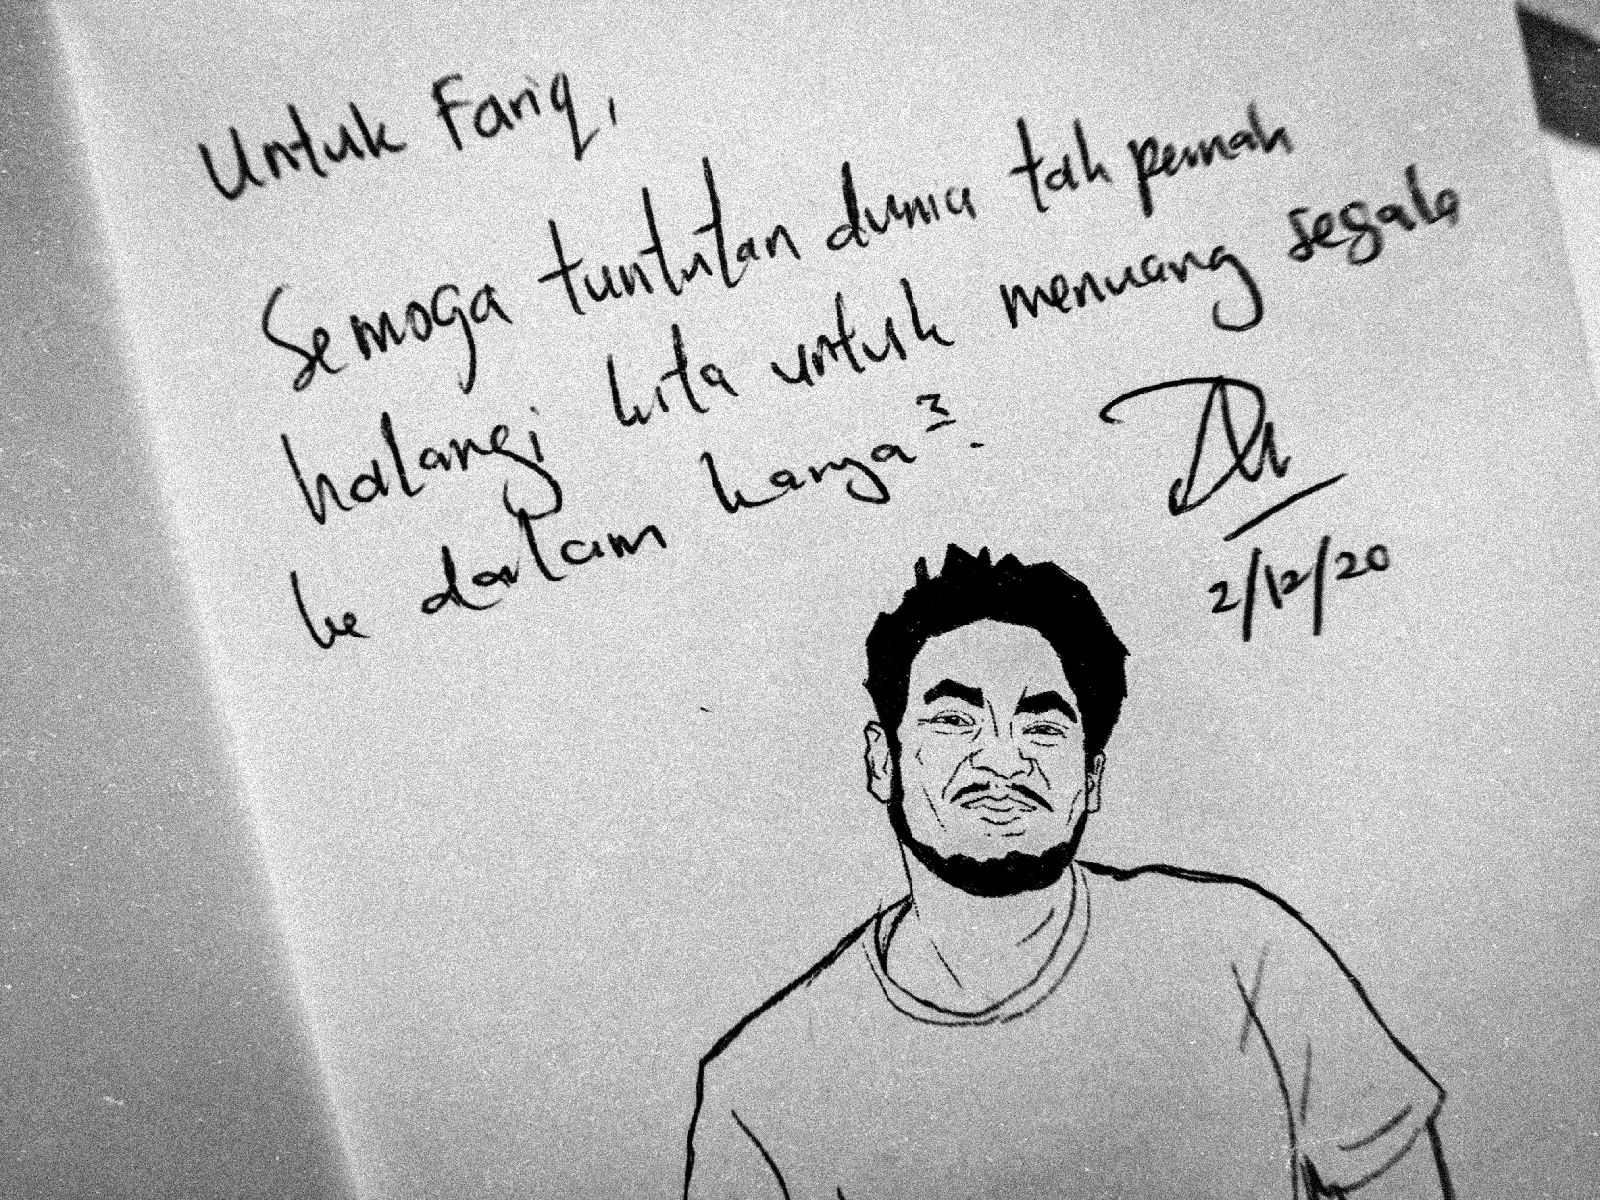 Untuk Fariq,
Semoga tuntutan dunia tak pernah
halangi kita untuk menuang segala
ke dalam karya².
2/12/20